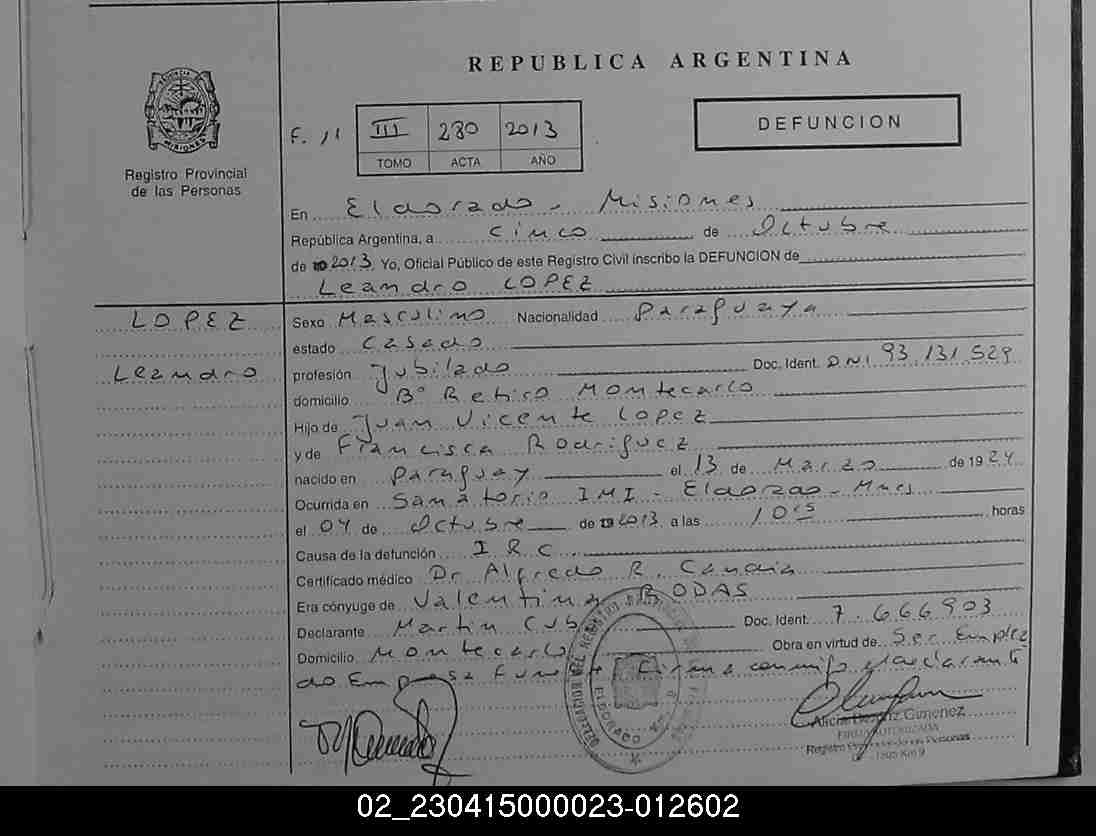 REPUBLICA ARGENTINA
PROVINCIA DE
MISIONES
Registro Provincial
de las Personas
F. 11 III 280 2013
TOMO ACTA AÑO
DEFUNCION
En Eldorado - Misiones
República Argentina, a cinco de Octubre
de 2013 Yo, Oficial Público de este Registro Civil inscribo la DEFUNCION de
Leandro LOPEZ
LOPEZ
Leandro
Sexo Masculino Nacionalidad Paraguaya
estado Casado
profesión Jubilado Doc. Ident. DNI 93.131.529
domicilio Bº Retiro Montecarlo
Hijo de Juan Vicente Lopez
y de Francisca Rodriguez
nacido en Paraguay el 13 de Marzo de 1924
Ocurrida en Sanatorio IMI - Eldorado - Mnes
el 04 de Octubre de 2013 a las 10 horas
Causa de la defunción I R C
Certificado médico Dr. Alfredo R. Candia
Era cónyuge de Valentina RODAS
Declarante Martin Doc. Ident. 7.666903
Domicilio Montecarlo Obra en virtud de Ser Emplea
do Empresa Firma conmigo el declarante
DELEGACION DEL REGISTRO
ELDORADO
Alicia Beatriz Gimenez
FIRMA AUTORIZADA
Registro Provincial de las Personas
Km 9
02_230415000023-012602